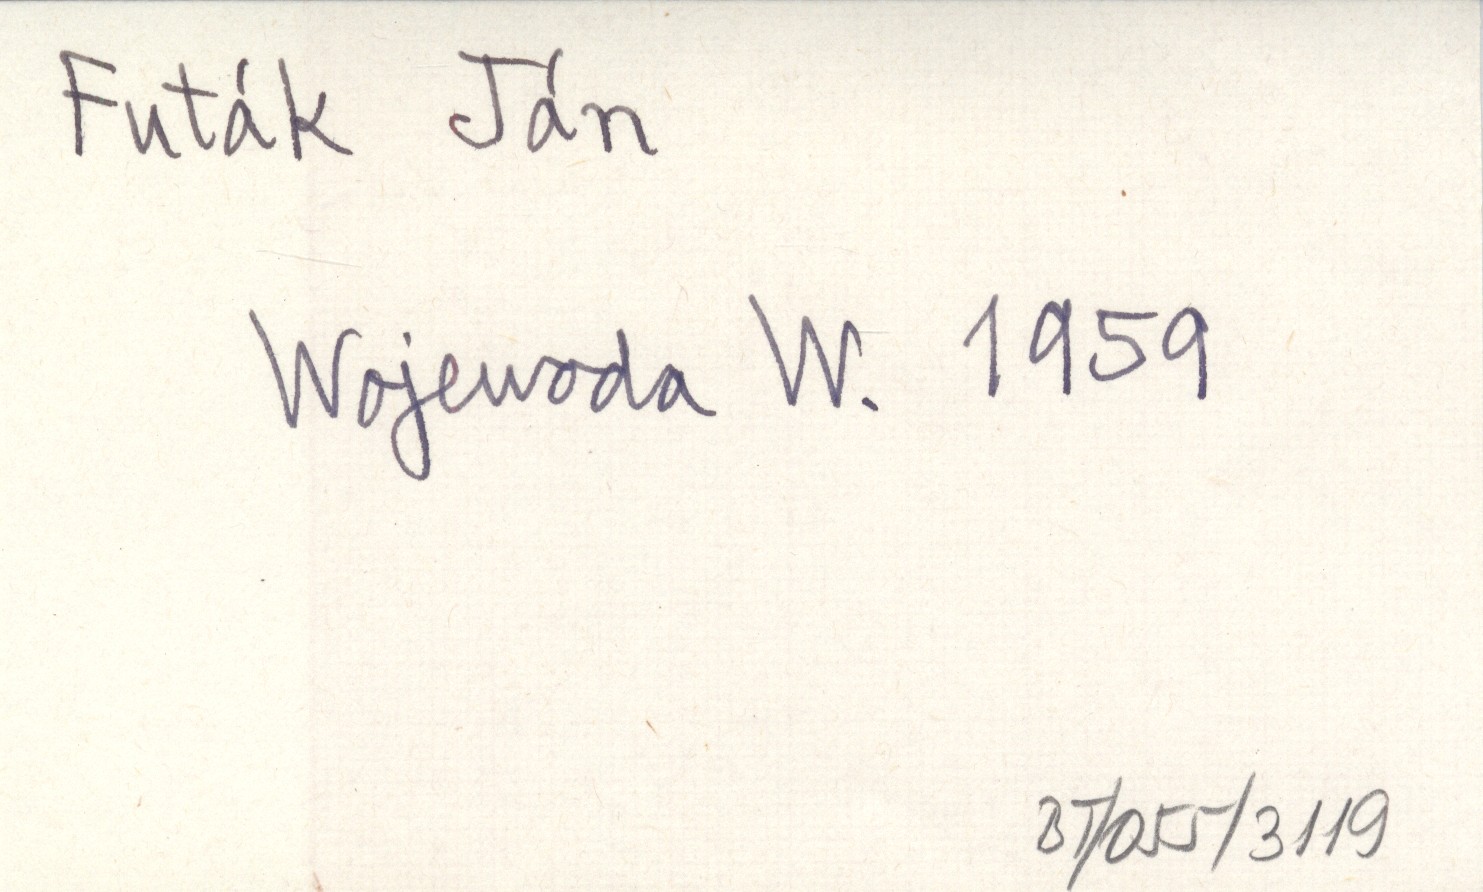 Futák Ján
Wojewoda W. 1959
BT/055/3119